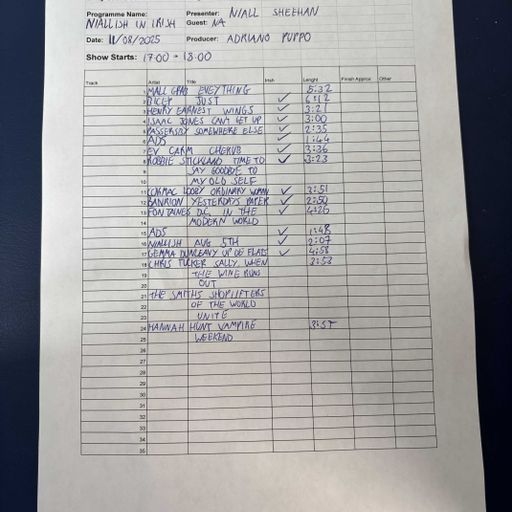 Programme Name: Presenter: NIALL SHEEHAN
NIALLISH IN IRISH Guest: NA
Date: 11/08/2025 Producer: ADRIANO PUPPO
Show Starts: 17:00 - 18:00
Track Artist Title Irish Lenght Finish Approx Other
1 MALL GRAB EVEYTHING 5:32
2 BICEP JUST ✓ 6:12
3 HENRY EARNEST WINGS ✓ 3:21
4 ISAAC JONES CAN'T GET UP ✓ 3:00
5 PASSERSBY SOMEWHERE ELSE ✓ 2:35
6 ADS ✓ 1:44
7 EV CARM CHERUB ✓ 3:36
8 ROBBIE STICKLAND TIME TO ✓ 3:23
9 SAY GOODBYE TO
10 MY OLD SELF
11 CORMAC LOOBY ORDINARY WOMAN ✓ 2:51
12 BANRION YESTERDAYS PAPER ✓ 2:50
13 FONTAINES D.C. IN THE ✓ 4:26
14 MODERN WORLD
15 ADS ✓ 1:48
16 NIALLISH AUG 5TH ✓ 2:07
17 GEMMA DUNLEAVY UP DE FLATS ✓ 4:58
18 CHRIS TUCKER SALLY WHEN 3:53
19 THE WINE RUNS
20 OUT
21 THE SMITHS SHOPLIFTERS
22 OF THE WORLD
23 UNITE
24 HANNAH HUNT VAMPIRE
25 WEEKEND
26
27
28
29
30
31
32
33
34
35